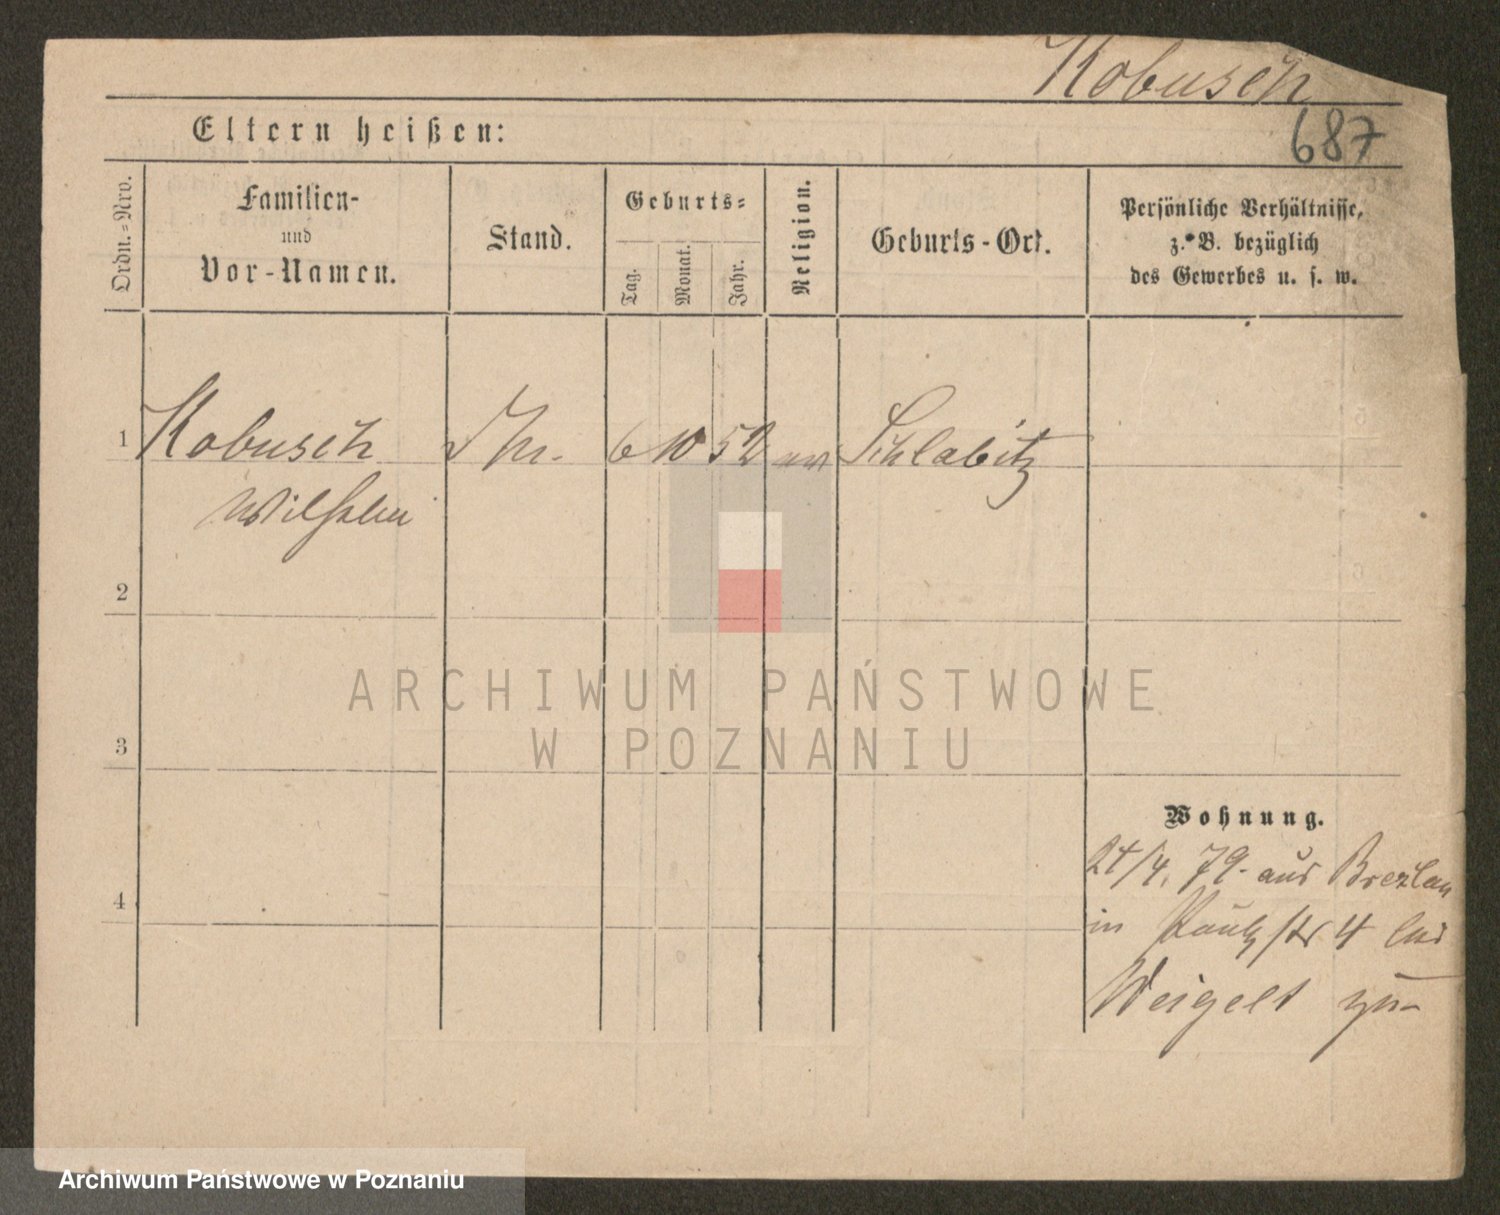 Kobusch
687
Eltern heißen:
Ordn.-Nro.
Familien-
und
Vor-Namen.
Stand.
Geburts-
Tag.
Monat.
Jahr.
Religion.
Geburts-Ort.
Persönliche Verhältnisse,
z. B. bezüglich
des Gewerbes u. s. w.
1 Kobusch 6 10 52 ev Schlabitz
Wilhelm
2
3
4
Wohnung.
24/4. 79. aus Breslau
in Paulistr 4 bei
Weigelt zu-
ARCHIWUM PAŃSTWOWE
W POZNANIU
Archiwum Państwowe w Poznaniu